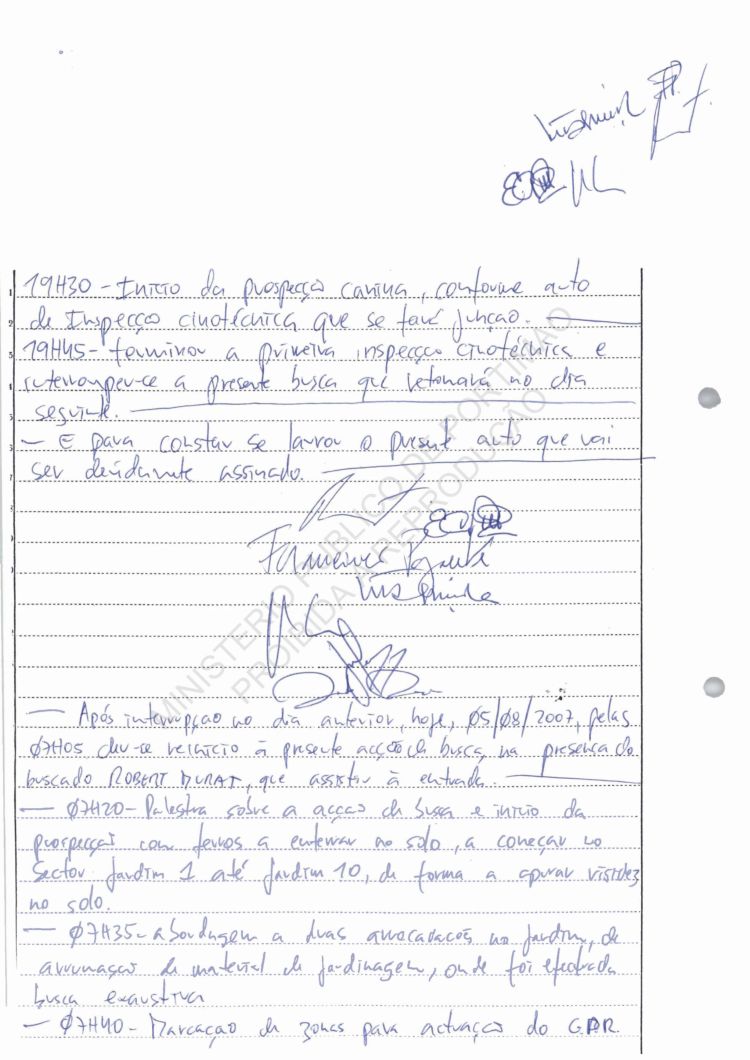 19H30 - Início da prospecção canina, conforme auto
de Inspecção cinotécnica que se fará junção.
19H45 - terminou a primeira inspecção cinotécnica e
interrompeu-se a presente busca que retomará no dia
seguinte.
- E para constar se lavrou o presente auto que vai
ser devidamente assinado.
MINISTERIO PUBLICO DE PORTIMÃO
PROIBIDA A REPRODUÇÃO
- Após interrupção no dia anterior, hoje, 05/08/2007, pelas
07H05 deu-se reinício à presente acção de busca, na presença do
buscado ROBERT MURAT, que assistiu à entrada.
- 07H20 - Palestra sobre a acção de busca e início da
prospecção com ferros a enterrar no solo, a começar no
Sector Jardim 1 até Jardim 10, de forma a apurar
no solo.
- 07H35 - abordagem a duas arrecadações no jardim, de
arrumação de material de jardinagem, onde foi efectuada
busca exaustiva
- 07H40 - Marcação de zonas para actuação do GPR